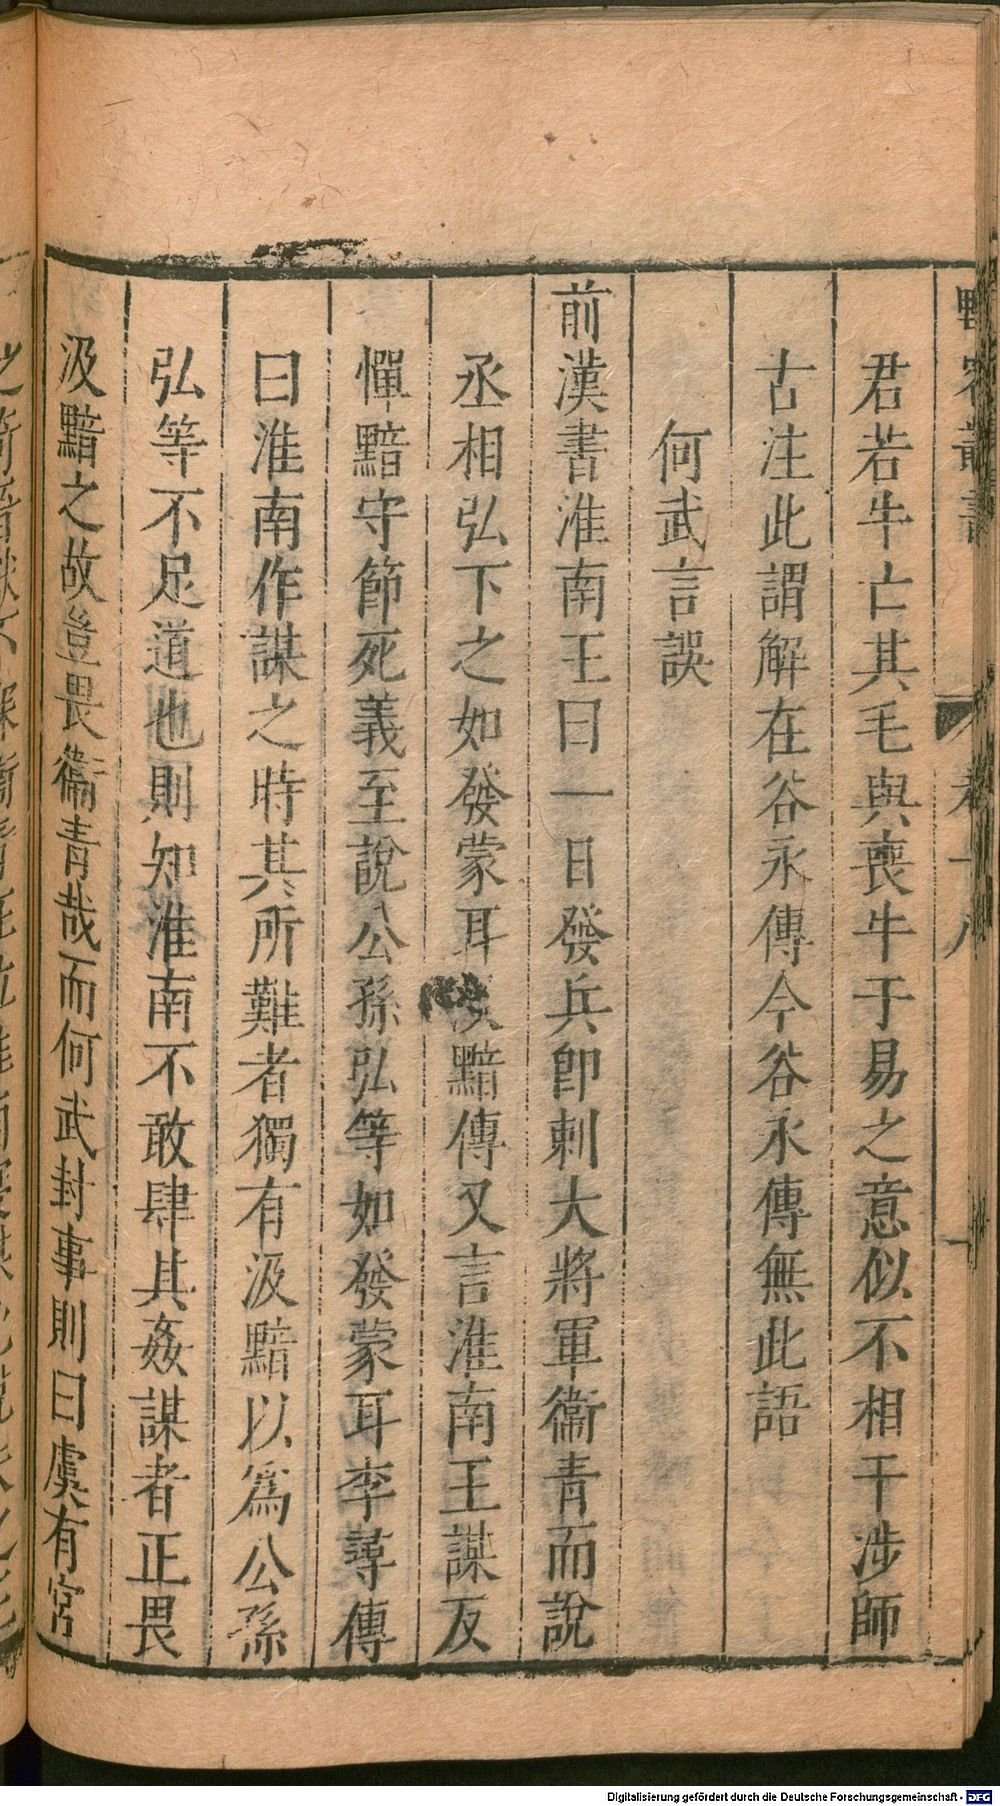 野客叢書
卷十八
君若牛亡其毛與喪牛于易之意似不相干涉師
古注此謂解在谷永傳今谷永傳無此語
何武言誤
前漢書淮南王曰一日發兵卽刺大將軍衞青而說
丞相弘下之如發蒙耳黯傳又言淮南王謀反
憚黯守節死義至說公孫弘等如發蒙耳李尋傳
曰淮南作謀之時其所難者獨有汲黯以爲公孫
弘等不足道也則知淮南不敢肆其姦謀者正畏
汲黯之故豈畏衞青哉而何武封事則曰虞有宮
Digitalisierung gefördert durch die Deutsche Forschungsgemeinschaft - DFG